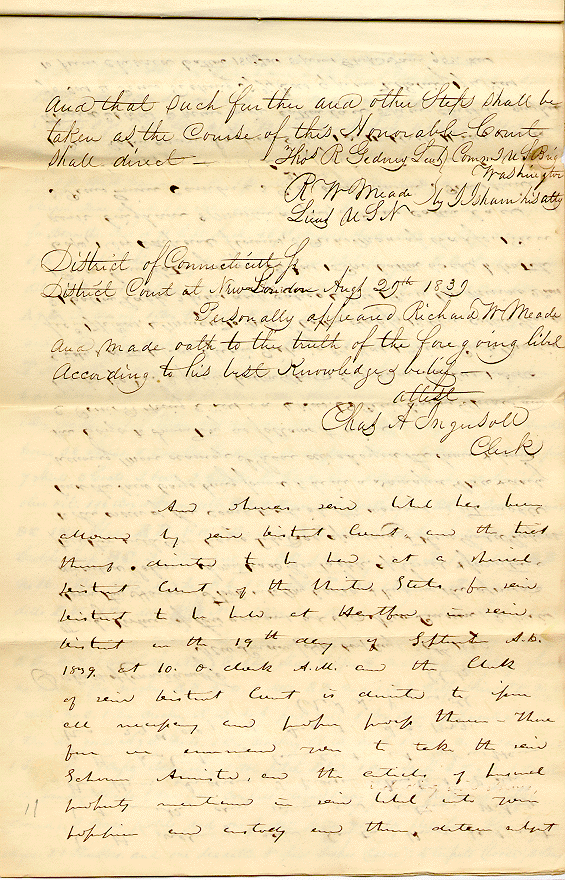 And that such further and other Steps shall be
taken as the Course of this Honorable Court
shall direct — Thos R Gedney Lieut Comm U S Brig
Washington
R W Meade by I Isham his atty
Lieut U S N
District of Connecticut Ss
District Court at New London Augt 29th 1839
Personally appeared Richard W Meade
and made oath to the truth of the foregoing libel
According to his best Knowledge & belief —
attest
Chas A Ingersoll
Clerk
And whereas said libel has been
allowed by said District Court and the trial
thereof directed to be had at a special
District Court of the United States for said
District to be held at Hartford in said
District on the 19th day of September A.D.
1839 at 10. o. clock A.M. and the Clerk
of said District Court is directed to issue
all necessary and proper process therein — There
fore we command you to take the said
Schooner Amistad, and the articles of personal
property mentioned in said libel into your
possession and custody and them detain subject
11